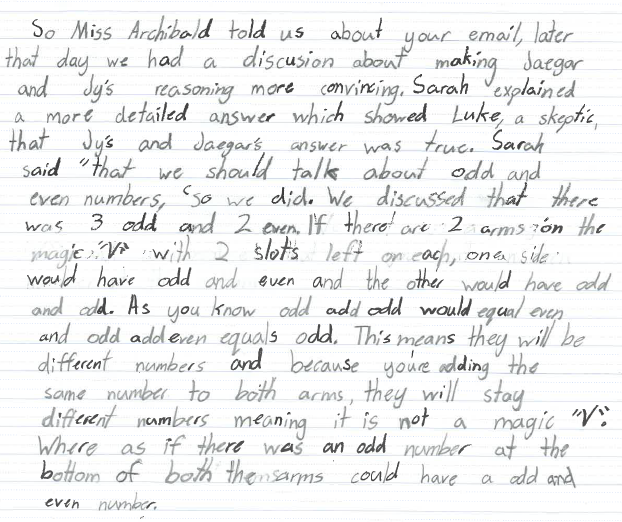 So Miss Archibald told us about your email, later
that day we had a discusion about making Jaegar
and Jy's reasoning more convincing. Sarah explained
a more detailed answer which showed Luke, a skeptic,
that Jy's and Jaegar's answer was true. Sarah
said "that we should talk about odd and
even numbers, "so we did. We discussed that there
was 3 odd and 2 even. If there are 2 arms on the
magic "V" with 2 slots left on each, one side
would have odd and even and the other would have odd
and odd. As you know odd add odd would equal even
and odd add even equals odd. This means they will be
different numbers and because you're adding the
same number to both arms, they will stay
different numbers meaning it is not a magic "V".
Where as if there was an odd number at the
bottom of both arms could have a odd and
even number.